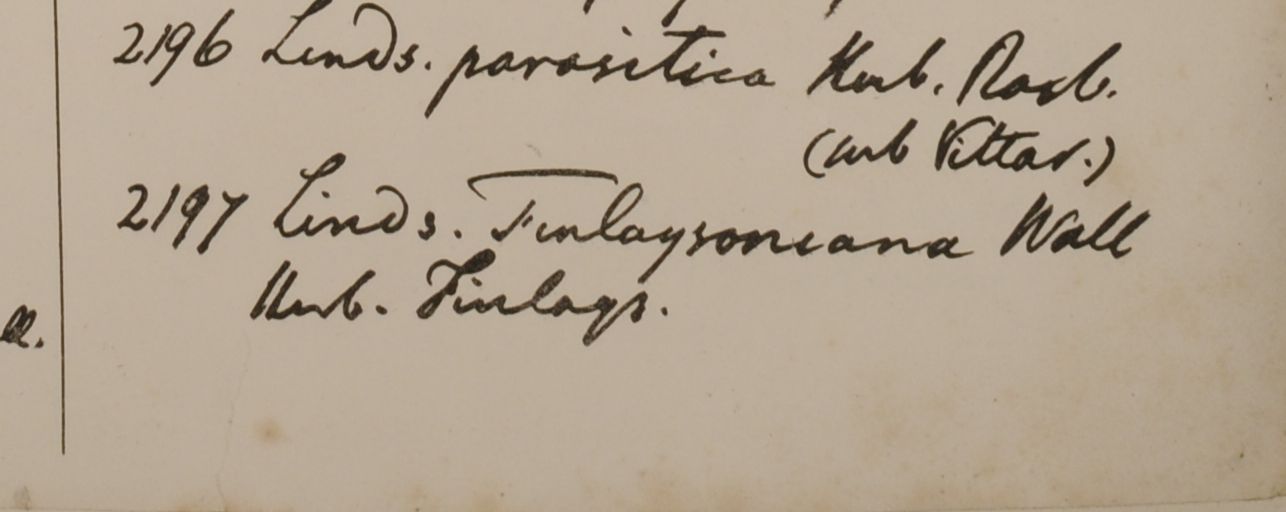 2196 Linds. parasitica Herb. Roxb.
(sub Vittar.)
2197 Linds. Finlaysoniana Wall
Herb. Finlays.
ll.